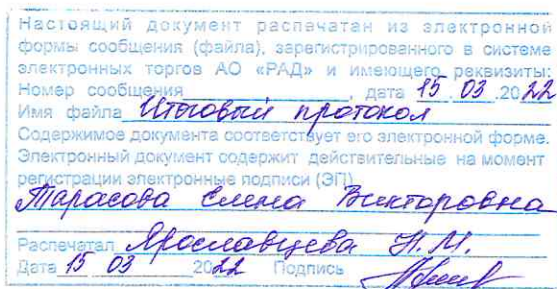 Настоящий документ распечатан из электронной
формы сообщения (файла), зарегистрированного в системе
электронных торгов АО «РАД» и имеющего реквизиты:
Номер сообщения , дата 15 03 2022
Имя файла Итоговый протокол
Содержимое документа соответствует его электронной форме.
Электронный документ содержит действительные на момент
регистрации электронные подписи (ЭП)
Тарасова Елена Викторовна
Распечатал Ярославцева Н.М.
Дата 15 03 2022 Подпись